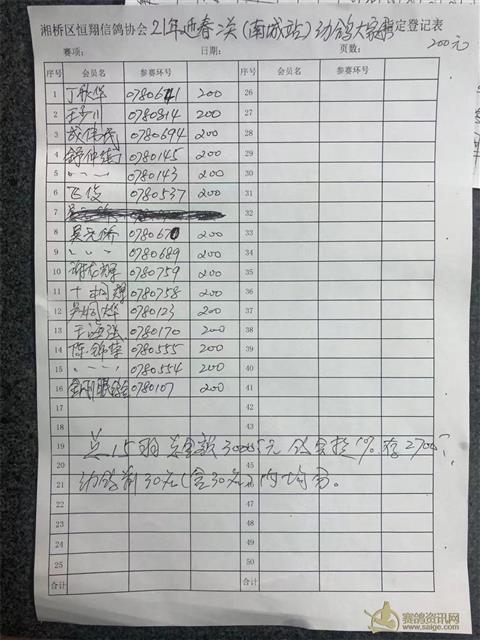 湘桥区恒翔信鸽协会21年迎春2关(南城站)幼鸽大家 指定登记表
赛项: 日期: 页数: 200元
序号 会员名 参赛环号 序号 会员名 参赛环号
1 丁 华 0780641 200 26
2 王少川 0780814 200 27
3 成伟 0780694 200 28
4 0780145 200 29
5 〃 〃 0780143 200 30
6 飞俊 0780537 200 31
7 32
8 吴 侨 0780670 200 33
9 〃 〃 0780689 200 34
10 谢 辉 0780759 200 35
11 0780758 200 36
12 吴炯烨 0780123 200 37
13 王海强 0780170 200 38
14 陈 0780555 200 39
15 〃 〃 0780554 200 40
16 0780107 200 41
17 42
18 43
19 总15羽 总金额3000元 协会提1% 存2700元
20 45
21 幼鸽前30名(含30名)内均分。
22 47
23 48
24 49
25 50
合计 合计
赛鸽资讯网
www.saige.com